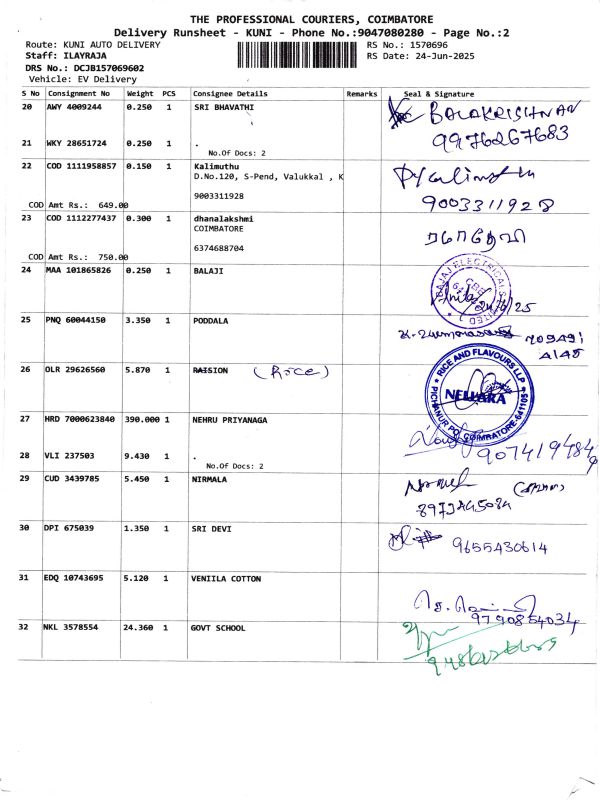 THE PROFESSIONAL COURIERS, COIMBATORE
Delivery Runsheet - KUNI - Phone No.:9047080280 - Page No.:2
Route: KUNI AUTO DELIVERY RS No.: 1570696
Staff: ILAYRAJA RS Date: 24-Jun-2025
DRS No.: DCJB157069602
Vehicle: EV Delivery
S No Consignment No Weight PCS Consignee Details Remarks Seal & Signature
20 AWY 4009244 0.250 1 SRI BHAVATHI BALAKRISHNAN
9976267683
21 WKY 28651724 0.250 1 .
No.Of Docs: 2
22 COD 1111958857 0.150 1 Kalimuthu
D.No.120, S-Pend, Valukkal , K
9003311928 9003311928
COD Amt Rs.: 649.00
23 COD 1112277437 0.300 1 dhanalakshmi
COIMBATORE
6374688704
COD Amt Rs.: 750.00
24 MAA 101865826 0.250 1 BALAJI BAJAJ ELECTRICALS LIMITED
25 PNQ 60044150 3.350 1 PODDALA
26 OLR 29626560 5.870 1 RAISION (Rice) RICE AND FLAVOURS LLP
NELLARA
PICHANUR PO, COIMBATORE-641105
27 HRD 7000623840 390.000 1 NEHRU PRIYANAGA
28 VLI 237503 9.430 1 .
No.Of Docs: 2
29 CUD 3439785 5.450 1 NIRMALA
30 DPI 675039 1.350 1 SRI DEVI 9655430614
31 EDQ 10743695 5.120 1 VENIILA COTTON
9790854034
32 NKL 3578554 24.360 1 GOVT SCHOOL